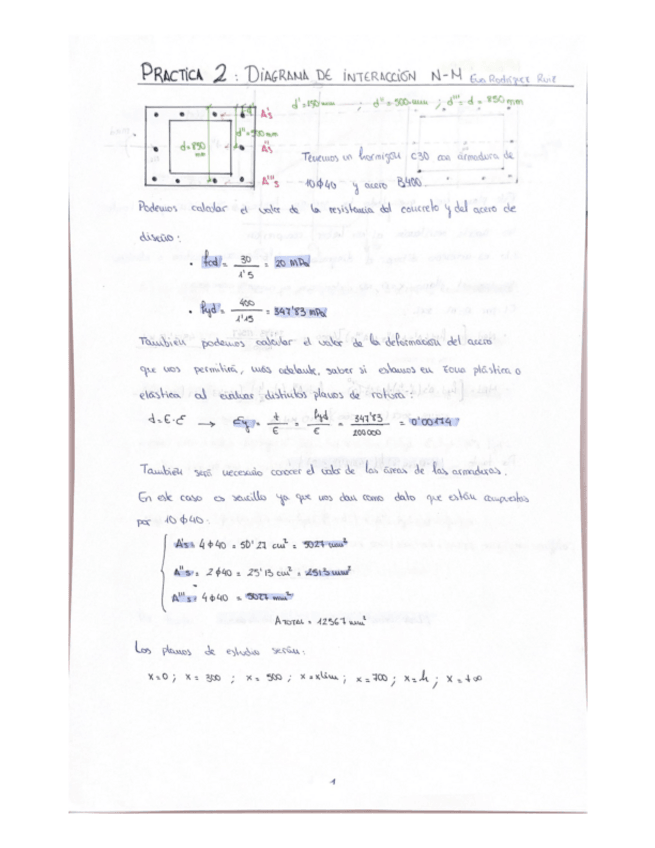 PRACTICA 2 : DIAGRAMA DE INTERACCIÓN N-M Eva Rodríguez Ruiz
d'=150mm ; d''=500mm ; d'''=d = 850mm
A's
d''=500mm
d=850
mm
A''s
A'''s
Tenemos un hormigón C30 con armadura de
10ϕ40 y acero B400.
Podemos calcular el valor de la resistencia del concreto y del acero de
diseño:
• fcd = 30/1'5 = 20 MPa
• fyd = 400/1'15 = 347'83 MPa
También podemos calcular el valor de la deformación del acero
que nos permitirá, más adelante, saber si estamos en zona plástica o
elástica al evaluar distintos planos de rotura:
σ=E·ε → εy = σ/E = fyd/E = 347'83/200000 = 0'00174
También será necesario conocer el valor de las áreas de las armaduras.
En este caso es sencillo ya que nos dan como dato que están compuestas
por 10ϕ40:
A's = 4ϕ40 = 50'27 cm² = 5027 mm²
A''s = 2ϕ40 = 25'13 cm² = 2513 mm²
A'''s = 4ϕ40 = 5027 mm²
ATOTAL = 12567 mm²
Los planos de estudio serán:
x=0 ; x = 300 ; x = 500 ; x=xlim ; x = 700 ; x=h ; x=+∞
1